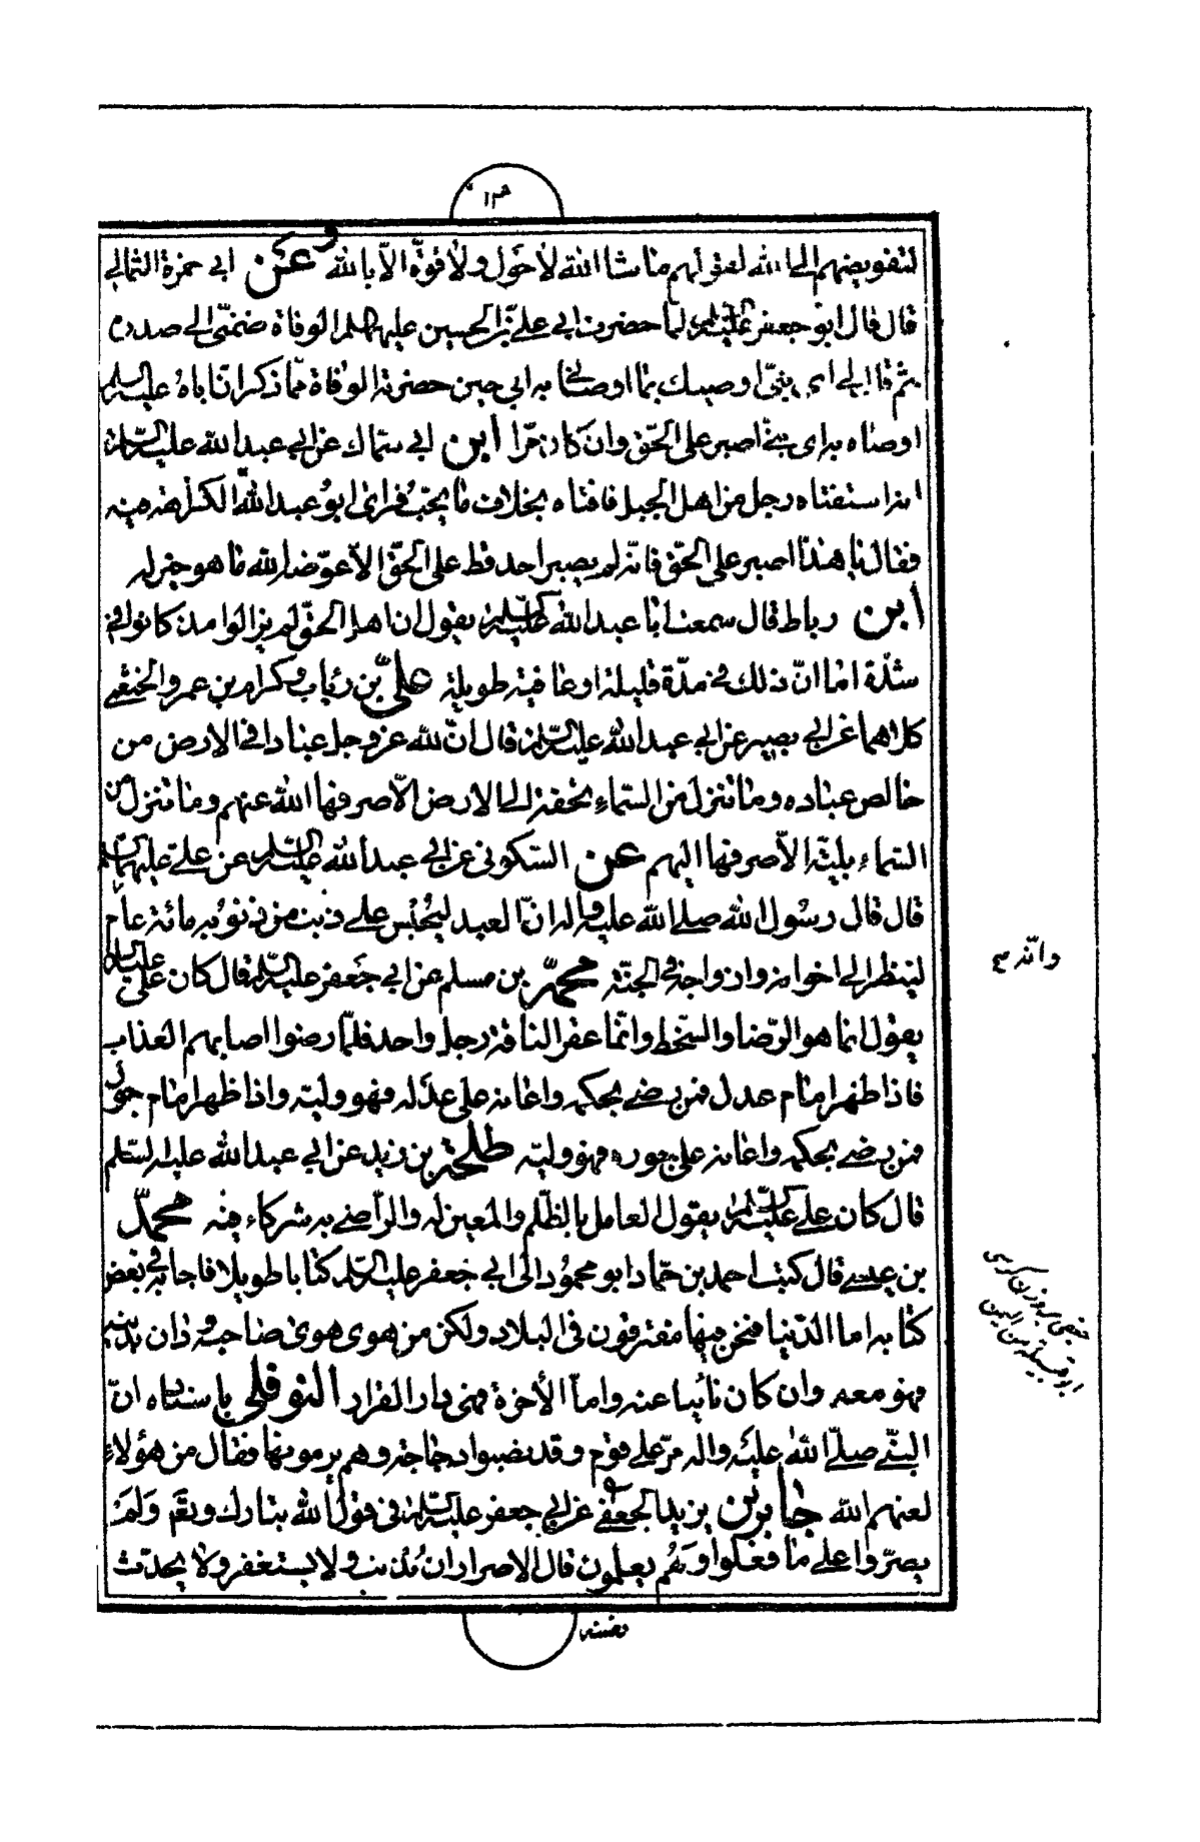 ١٣٠
لتفويضهم الى الله لعقولهم ما شاء الله لا حول ولا قوة الا بالله وعن ابي حمزة الثمالي
قال قال ابو جعفر عليه السلام لما حضرت ابي علي بن الحسين عليهما السلام الوفاة ضمني الى صدره
ثم قال اي بني اوصيك بما اوصاني به ابي حين حضرته الوفاة مما ذكر ان اباه عليه السلم
اوصاه به اي بني اصبر على الحق وان كان مرا ابن ابي سماك عن ابي عبد الله عليه السلام
انه استفتاه رجل من اهل الجبل فافتاه بخلاف ما يحب فراى ابو عبد الله الكراهة فيه
فقال يا هذا اصبر على الحق فانه لم يصبر احد قط على الحق الا عوضه الله ما هو خير له
ابن رباط قال سمعت ابا عبد الله عليه السلام يقول ان اهل الحق لم يزالوا منذ كانوا في
شدة اما ان ذلك في مدة قليلة او عافية طويلة علي بن رئاب وكرام بن عمرو الخثعمي
كلاهما عن ابي بصير عن ابي عبد الله عليه السلام قال ان لله عز وجل عبادا في الارض من
خالص عباده وما تنزل من السماء تحفة الى الارض الا صرفها الله عنهم وما تنزل من
السماء بلية الا صرفها اليهم عن السكوني عن ابي عبد الله عليه السلم عن علي عليه السلم
قال قال رسول الله صلى الله عليه واله ان العبد ليحبس على ذنب من ذنوبه مائة عام
لينظر الى اخوانه وازواجه في الجنة محمد بن مسلم عن ابي جعفر عليه السلم قال كان علي عليه السلم
يقول انما هو الرضا والسخط وانما عقر الناقة رجل واحد فلما رضوا اصابهم العذاب
فاذا ظهر امام عدل فمن رضي بحكمه واعانه على عدله فهو وليه واذا ظهر امام جور
فمن رضي بحكمه واعانه على جوره فهو وليه طلحة بن زيد عن ابي عبد الله عليه السلم
قال كان علي عليه السلام يقول العامل بالظلم والمعين له والراضي به شركاء فيه محمد
بن عيسى قال كتب احمد بن حماد ابو محمود الى ابي جعفر عليه السلم كتابا طويلا فاجابه في بعض
كتابه اما الدنيا فنحن فيها مفترقون في البلاد ولكن من هوى هوى صاحبه ودان بدينه
فهو معه وان كان نائيا عنه واما الأخرة فهي دار القرار النوفلي باسناده ان
النبي صلى الله عليه واله مر على قوم وقد نصبوا دجاجة وهم يرمونها فقال من هؤلاء
لعنهم الله جابر بن يزيد الجعفي عن ابي جعفر عليه السلام في قول الله تبارك وتعالى ولم
يصروا على ما فعلوا وهم يعلمون قال الاصرار ان يذنب ولا يستغفر ولا يحدث
نفسه
وانه